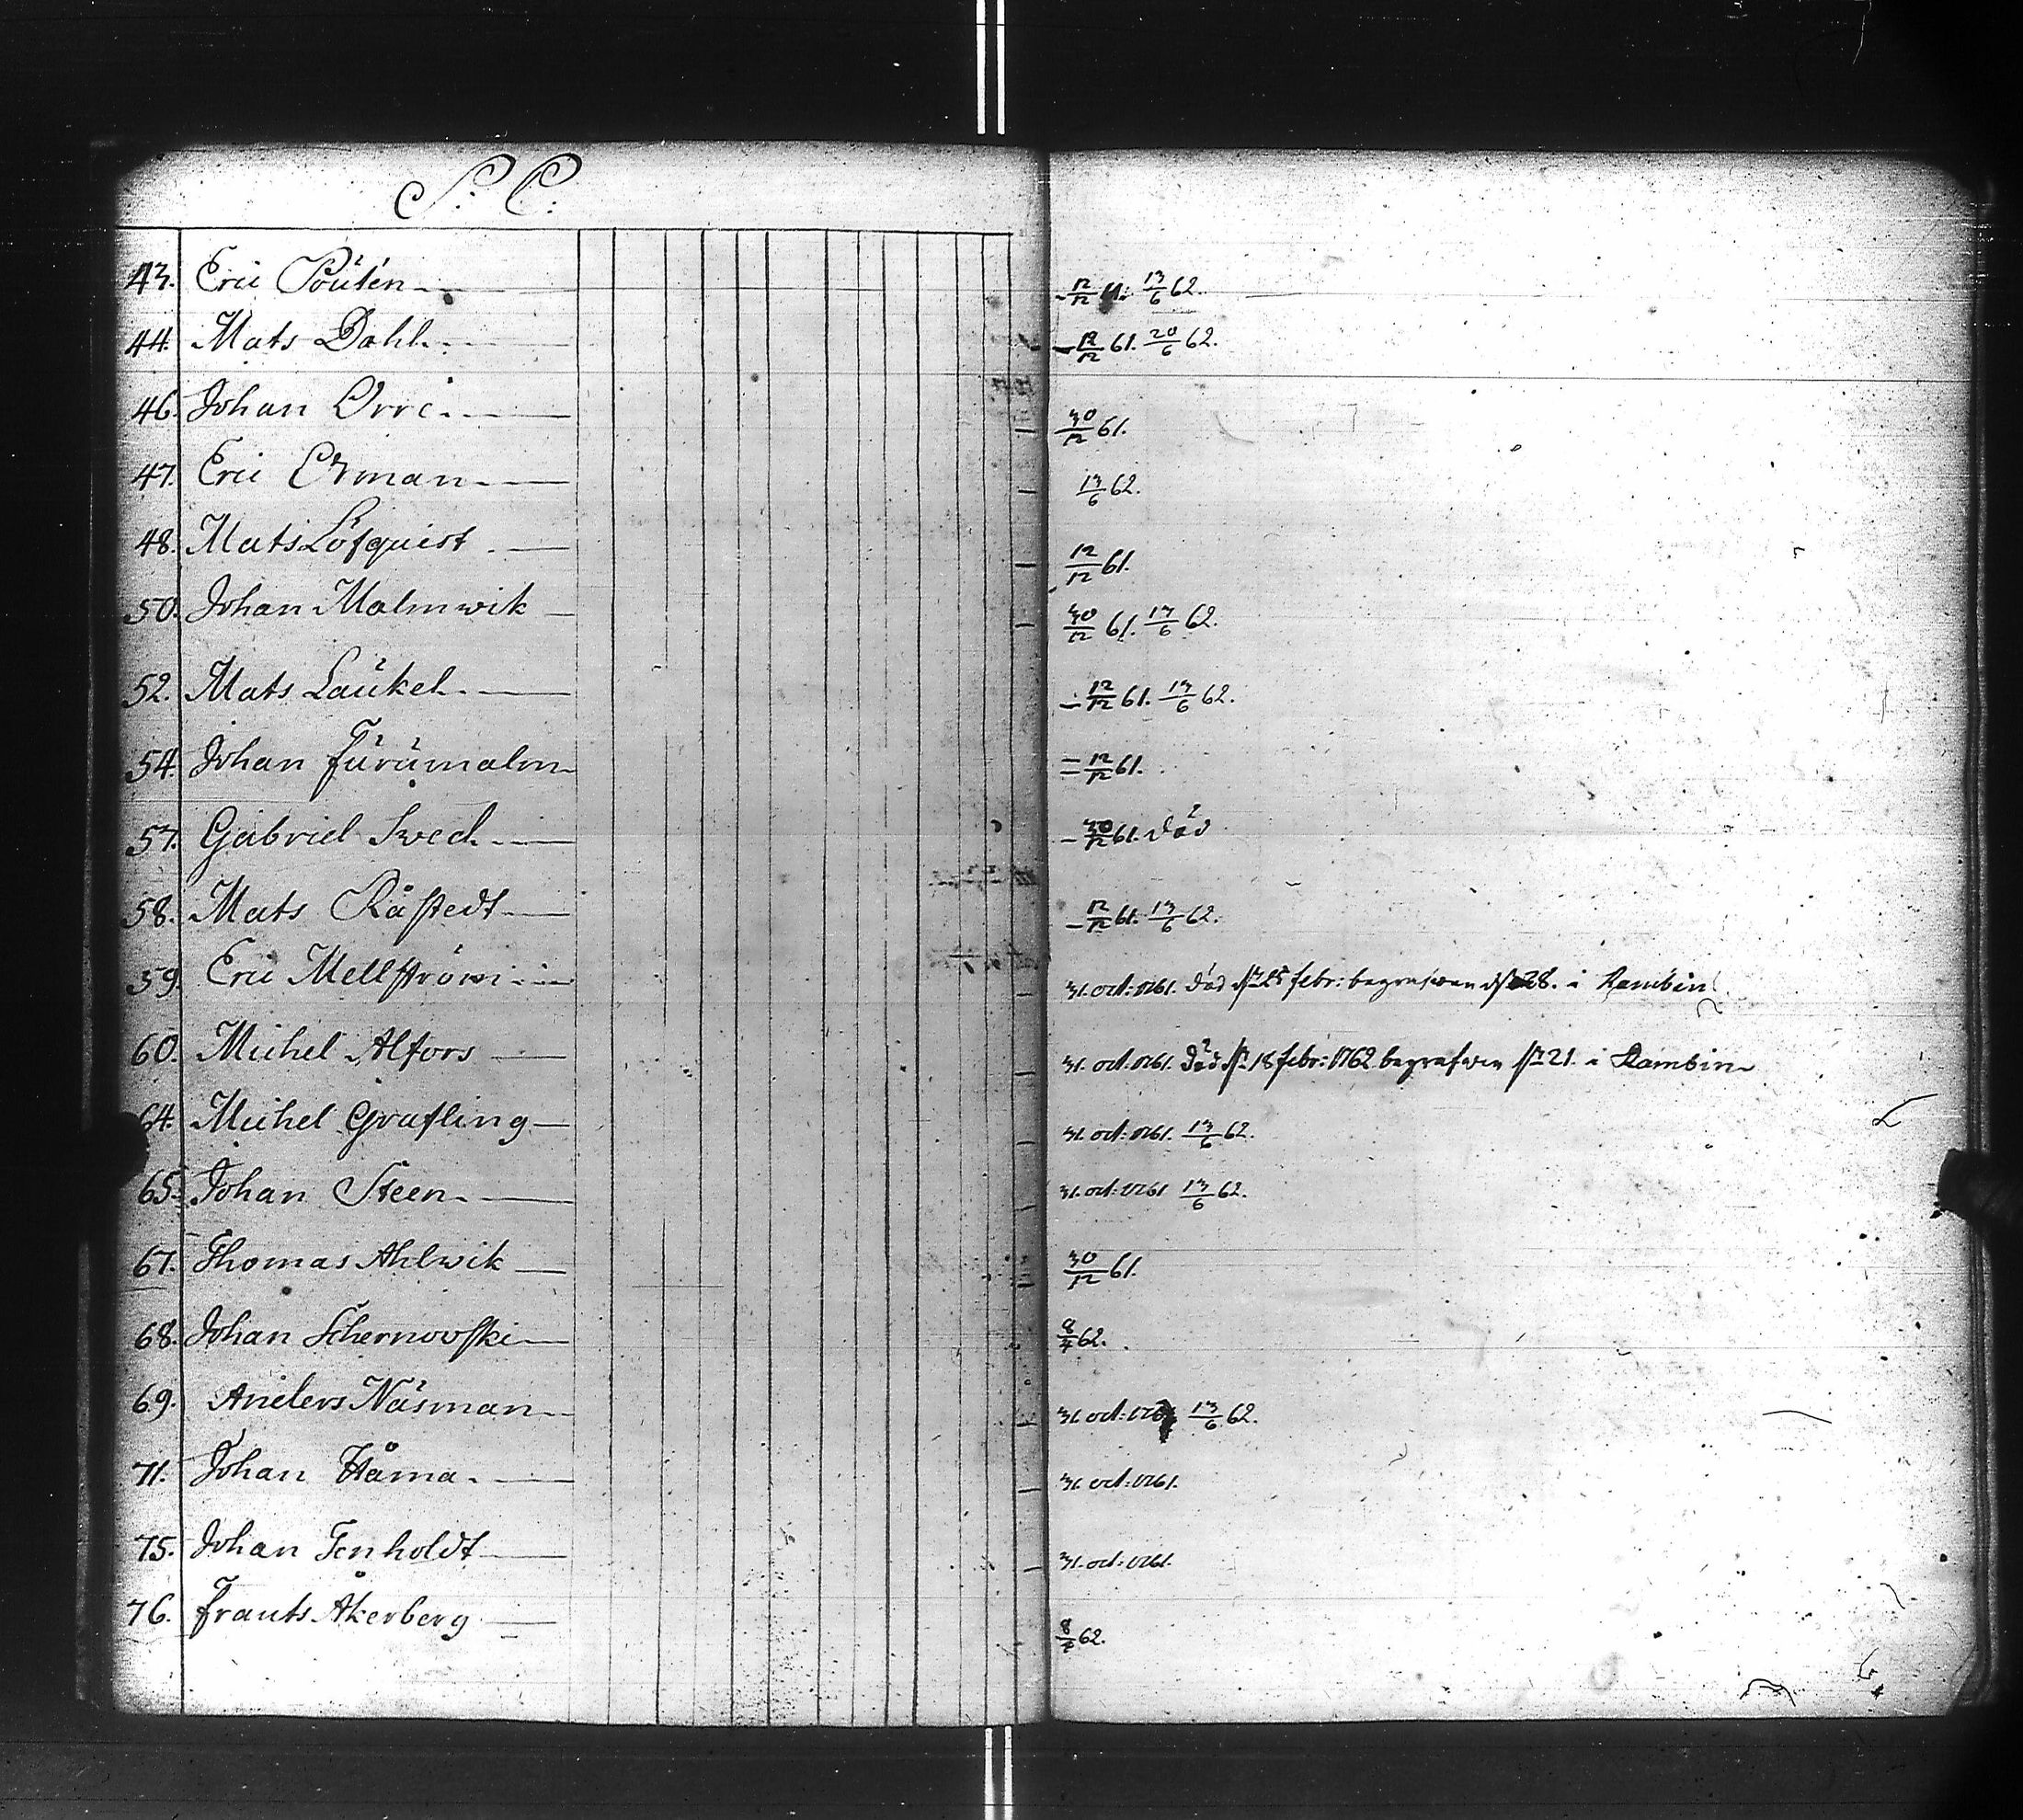 S: C:
43. Eric Pouten 12/12 61. 13/6 62.
44. Mats Dahl 12/12 61. 20/6 62.
46. Johan Orre 30/12 61.
47. Eric Erman 13/6 62.
48. Mats Löfquist 12/12 61.
50. Johan Malmwik 30/12 61. 13/6 62.
52. Mats Laukel 12/12 61. 13/6 62.
54. Johan Furumalm 12/12 61.
57. Gabriel Sved 30/12 61. död
58. Mats Råstedt 12/12 61. 13/6 62.
59. Eric Mellström 31. oct: 1761. död d. 25 febr: begrafwen d. 28. i Rambin
60. Michel Alfors 31. oct. 1761. död d. 18 febr: 1762 begrafwen d. 21. i Rambin
64. Michel Grafling 31. oct: 1761. 13/6 62.
65. Johan Steen 31. oct: 1761 13/6 62.
67. Thomas Ahlwik 30/12 61.
68. Johan Schernovski 8/4 62.
69. Anders Näsman 31. oct: 13/6 62.
71. Johan Håma 31. oct: 1761.
75. Johan Fenholdt 31. oct: 1761.
76. Frants Åkerberg 8/4 62.